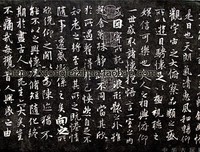 是日也天朗氣清惠風和暢仰
觀宇宙之大俯察品類之盛
所以遊目騁懷足以極視聽之娛
信可樂也夫人之相與俯仰
一世或取諸懷抱悟言一室之內
或因寄所託放浪形骸之外雖
趣舍萬殊靜躁不同當其欣
於所遇暫得於己快然自足不
知老之將至及其所之既惓情
隨事遷感慨係之矣向之所
欣俛仰之閒以為陳迹猶不
能不以之興懷況脩短隨化終
期於盡古人云死生亦大矣豈
不痛哉每攬昔人興感之由